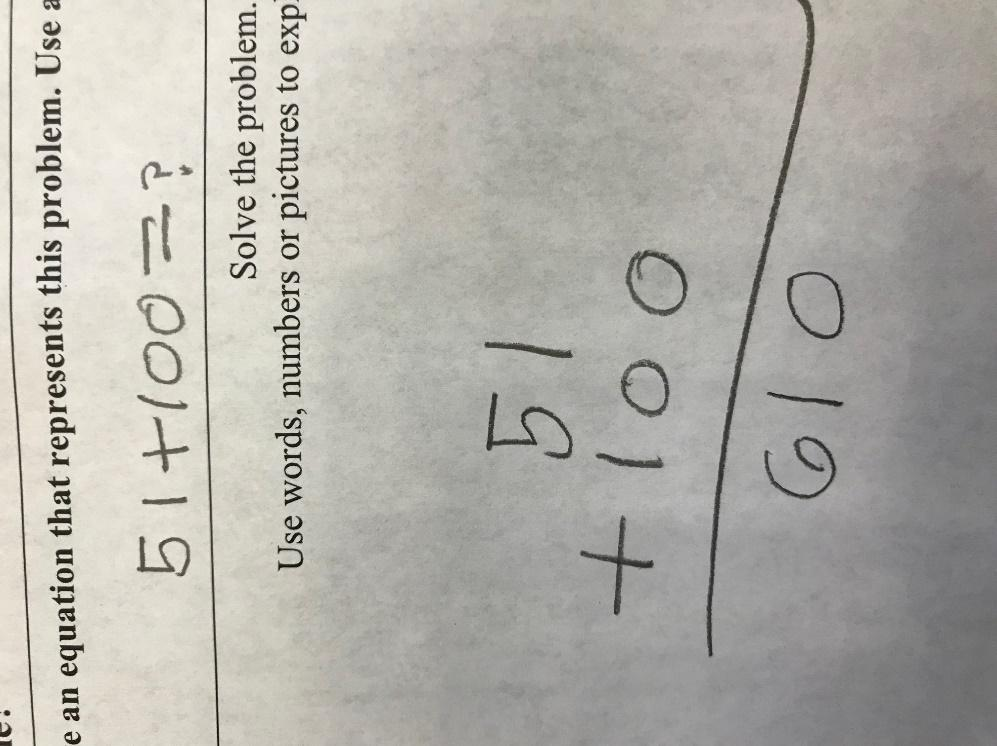 e an equation that represents this problem. Use a
51+100=?
Solve the problem.
Use words, numbers or pictures to expl
51
+100
610